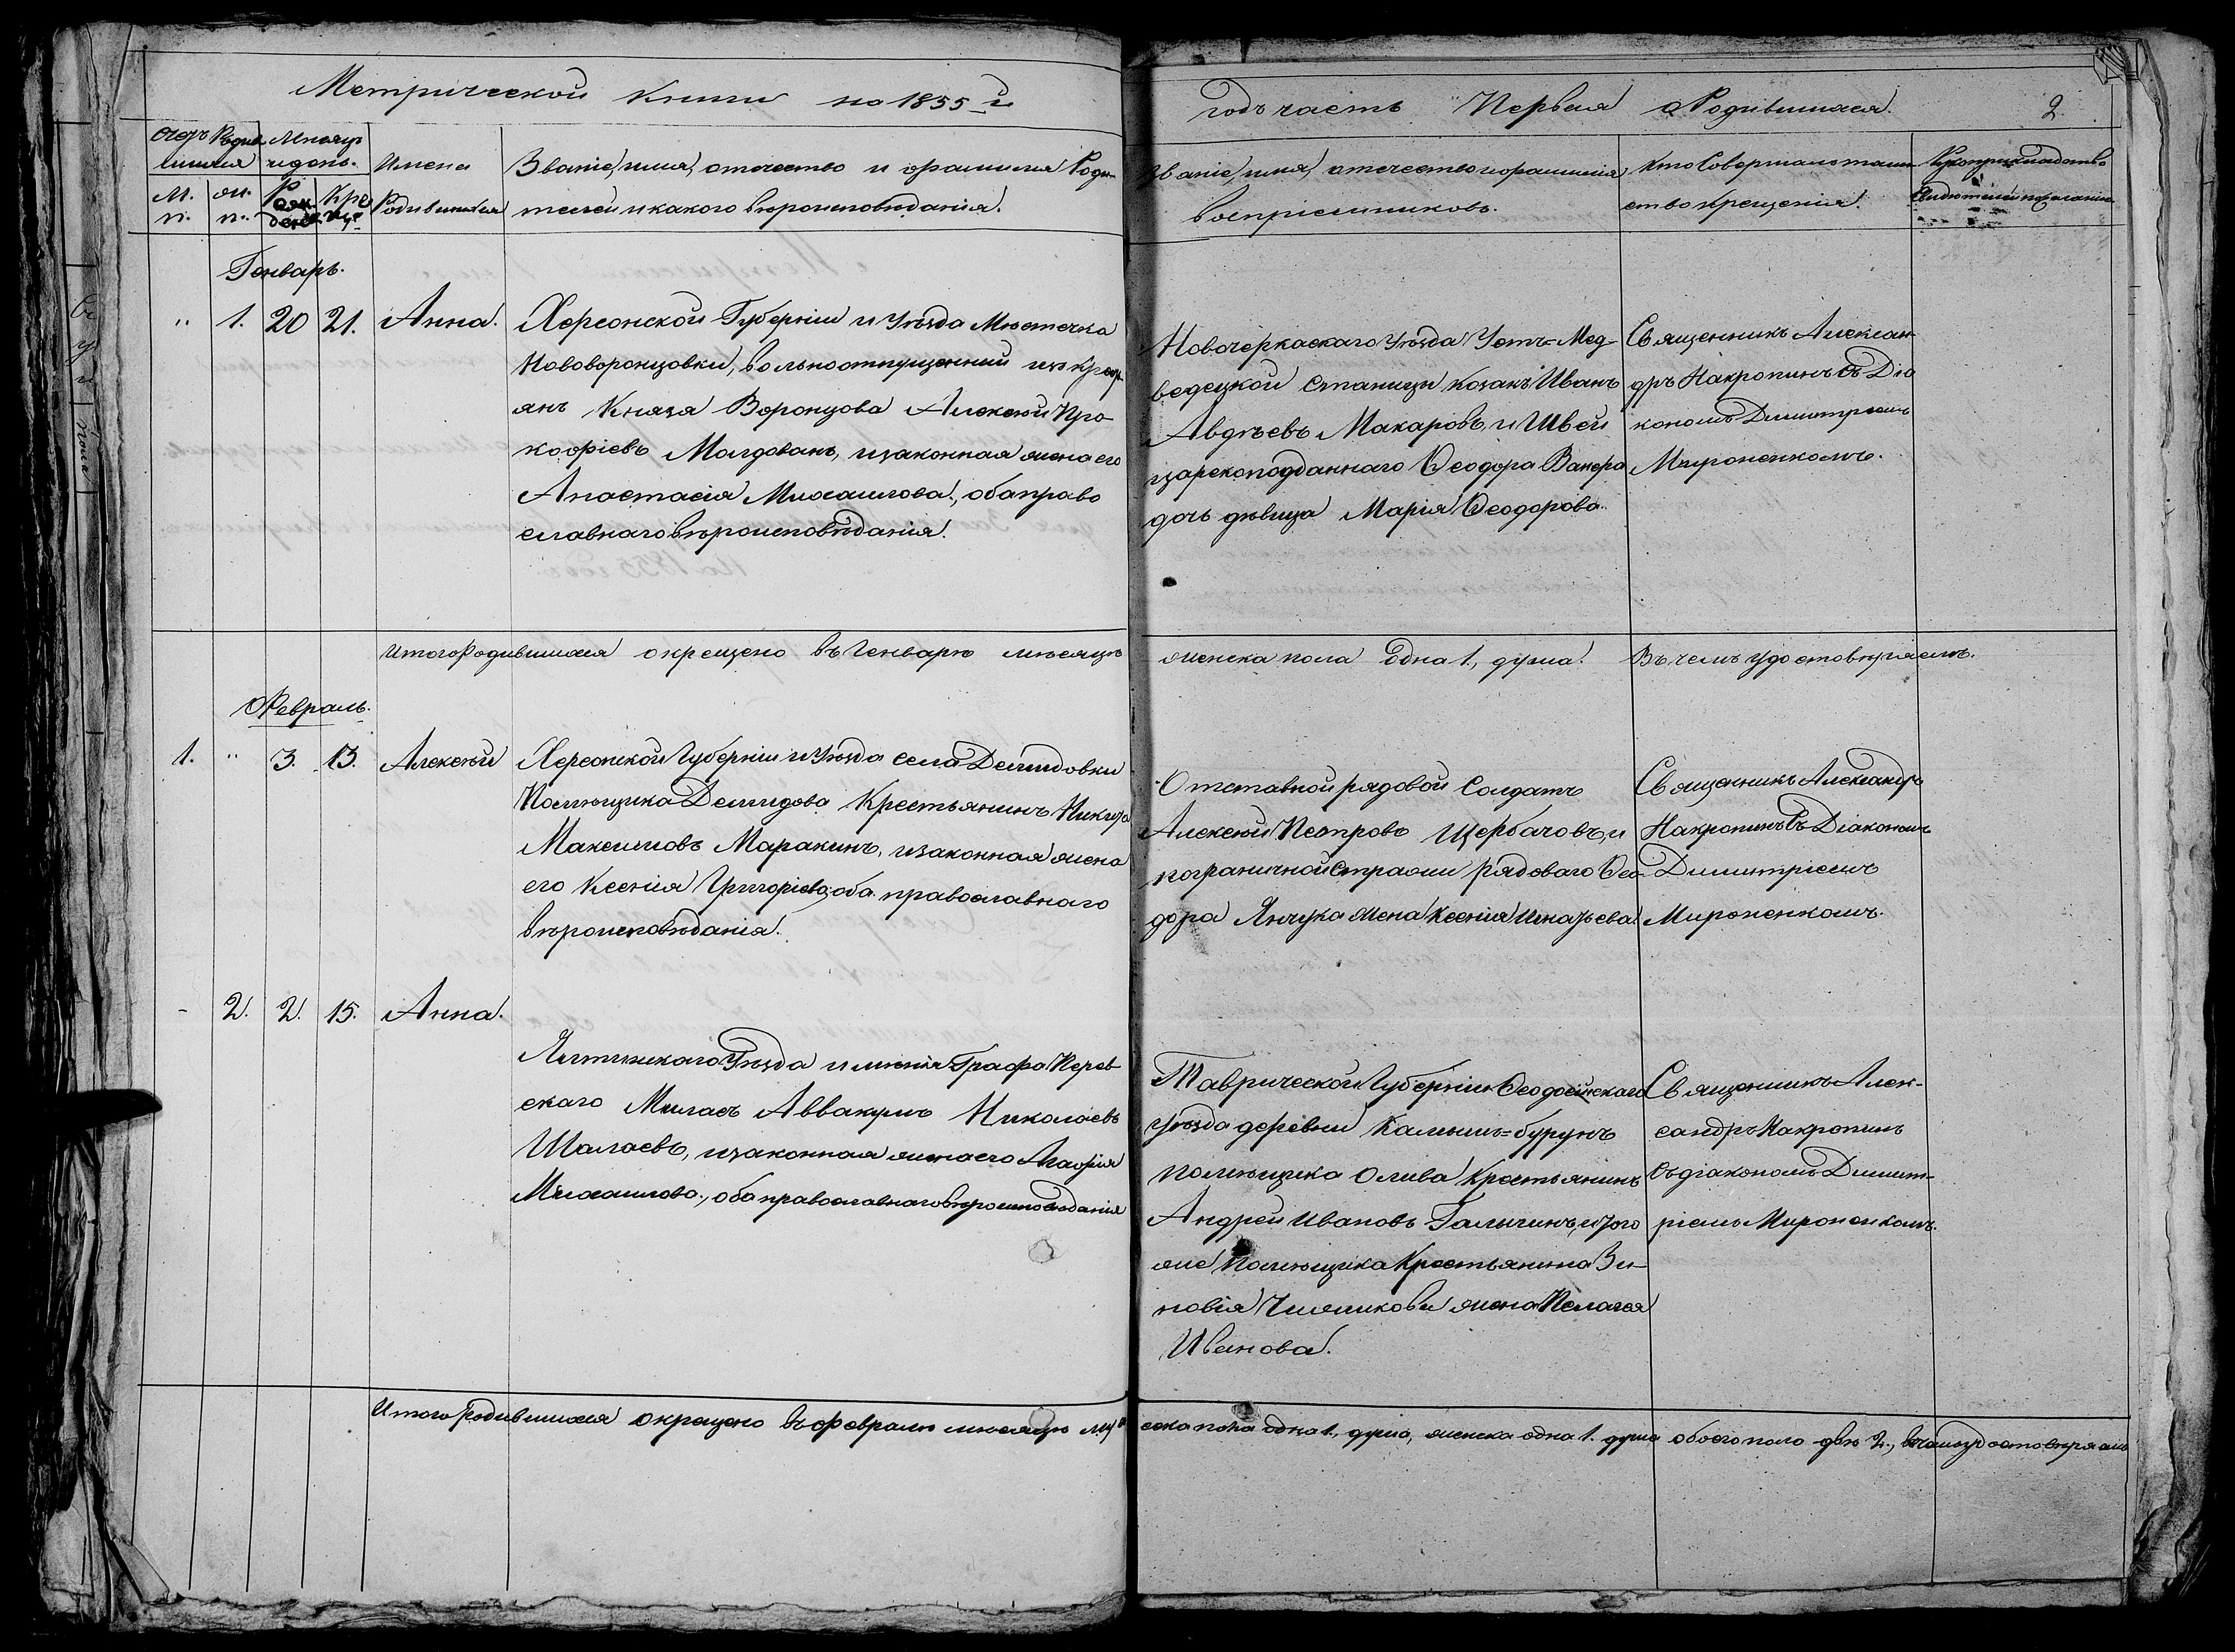 Метрической книги на 1855 й
годъ часть Первая о Родившихся.
2.
Счетъ Родив
шихся
Мѣсяцъ
и день.
М.
п.
Ж.
п.
Рож
денія
Кре
ще
Имена
Родившихся
Званіе, имя, отечество и фамилія Роди-
телей и какого вѣроисповѣданія.
Званіе, имя, отечество и фамилія
воспріемниковъ.
Кто Совершалъ таин
ство крещенія.
Рукоприкладство
свидѣтелей по желанію
Генварь.
" 1. 20 21. Анна.
Херсонской Губерніи и Уѣзда Мѣстечка
Нововоронцовки, вольноотпущенный изъ крестъ
янъ Князя Воронцова Алексѣй Про
кофіевъ Молдованъ, и законная жена его
Анастасія Михаилова, оба право
славнаго вѣроисповѣданія.
Новочеркаскаго Уѣзда Усть=Мед-
ведецкой Станицы козакъ Иванъ
Авдѣевъ Макаровъ, и Швей
царскоподданнаго Ѳеодора Вакера
дочь дѣвица Марія Ѳеодорова.
Священникъ Алексан
дръ Накропинъ съ Діа
кономъ Димитріемъ
Мироненкомъ.
Итого Родившихся окрещено въ Генварѣ мѣсяцѣ
женска пола одна 1, душа. Въ чемъ удостовѣряемъ.
Февраль.
1. " 3. 13. Алексѣй
Херсонской Губерніи и Уѣзда села Демидовки
Помѣщика Демидова Крестьянинъ Никита
Максимовъ Маракинъ, и законная жена
его Ксенія Григоріева; оба православнаго
вѣроисповѣданія.
Отставной рядовой Солдатъ
Алексѣй Петровъ Щербачовъ, и
пограничной стражи рядоваго Ѳео
дора Янчука жена Ксенія Игнатьева
Священникъ Александръ
Накропинъ съ Діакономъ
Димитріемъ
Мироненкомъ.
- 2. 2. 15. Анна.
Ялтинскаго Уѣзда имѣнія Графа Перов
скаго Меласъ Аввакумъ Николаевъ
Шалаевъ, и законная жена его Агафія
Михаилова, оба православнаго вѣроисповѣданія
Таврической Губерніи Ѳеодосійскаго
уѣзда деревни Камышъ=бурунъ
помѣщика Олива Крестьянинъ
Андрей Ивановъ Галычинъ, и того
же помѣщика Крестьянина Зи-
новія Чижикова жена Пелагея
Иванова.
Священникъ Алек-
сандръ Накропинъ
съ діакономъ Димит-
ріемъ Мироненкомъ.
Итого Родившихся окрещено въ февралѣ мѣсяцѣ муж
ска пола одна 1, душа, женска одна 1. душа обоего пола двѣ 2., въ чемъ удостовѣряемъ